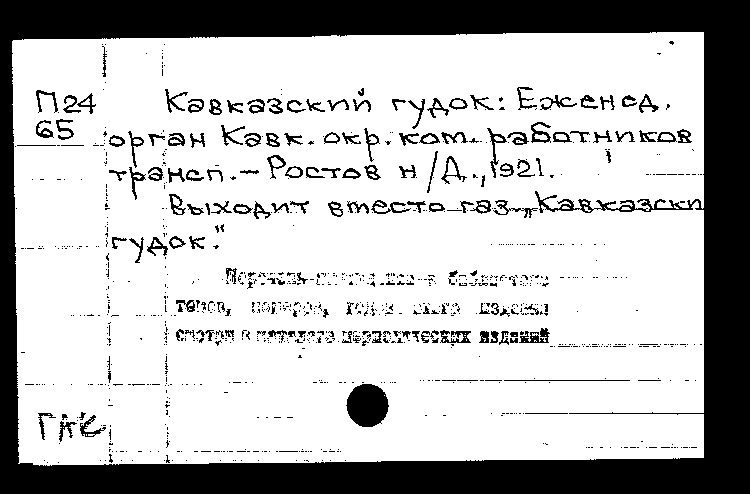 П24
65
Кавказский гудок: Еженед.
орган Кавк. окр. ком. работников
трансп. – Ростов н/Д., 1921.
Выходит вместо газ. „Кавказски
гудок."
Перечень в библиотеке
томов, номеров, года издания
смотри в каталоге периодических изданий